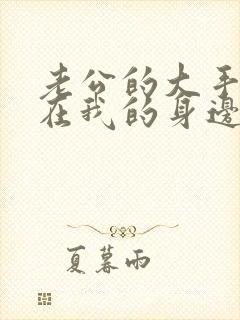 老公的大手
在我的身边
夏暮雨